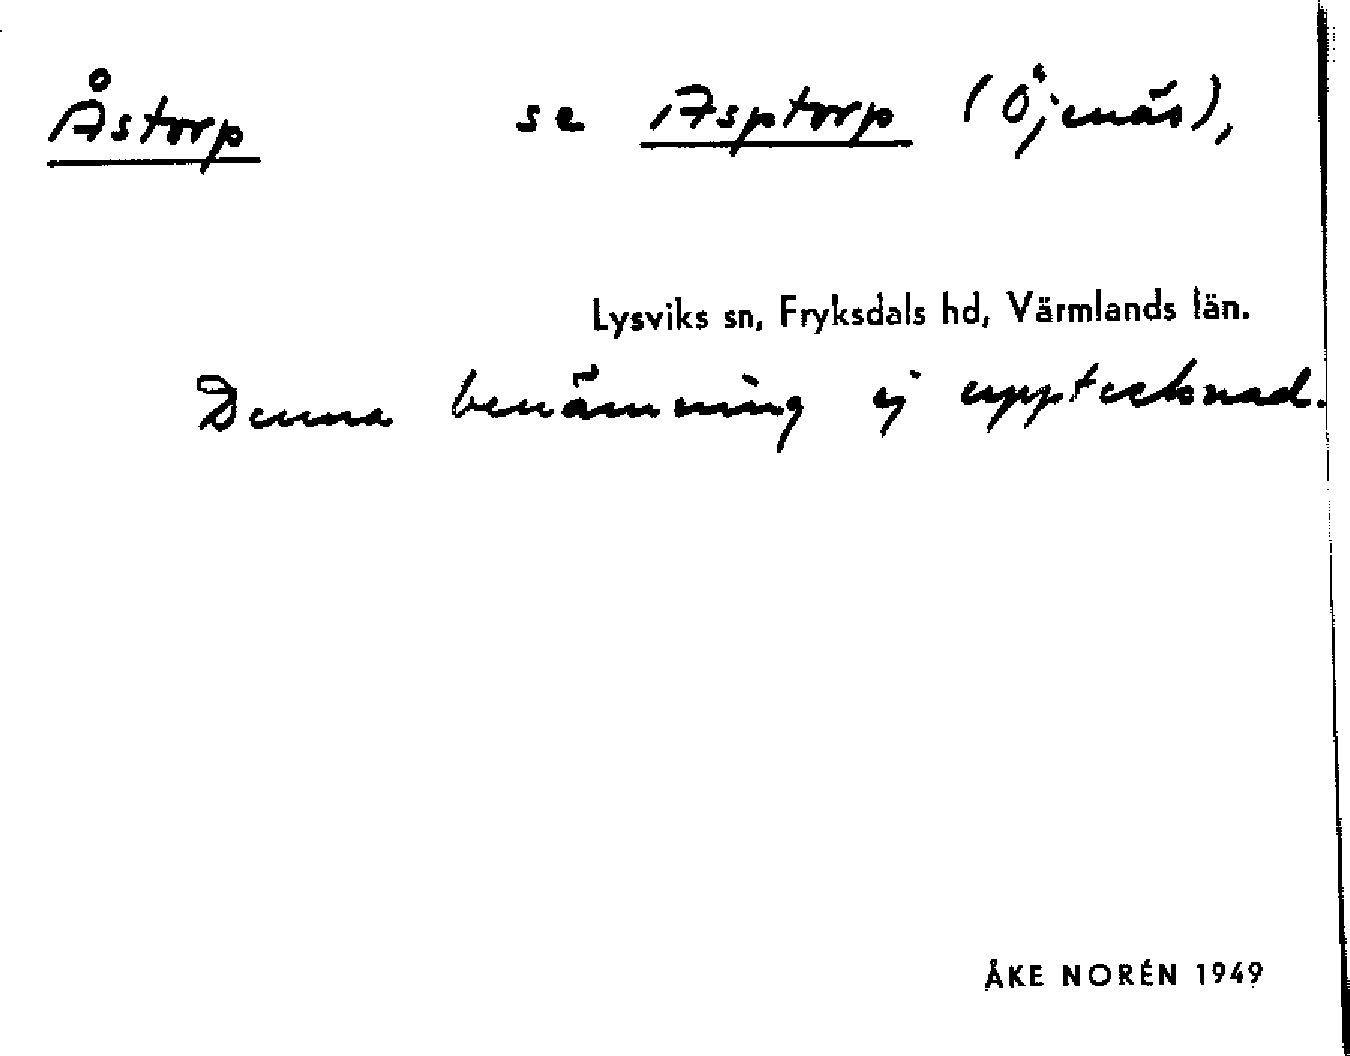 Åstorp se Asptorp (Öjenäs),
Lysviks sn, Fryksdals hd, Värmlands län.
Denna benämning ej upptecknad.
ÅKE NORÉN 1949